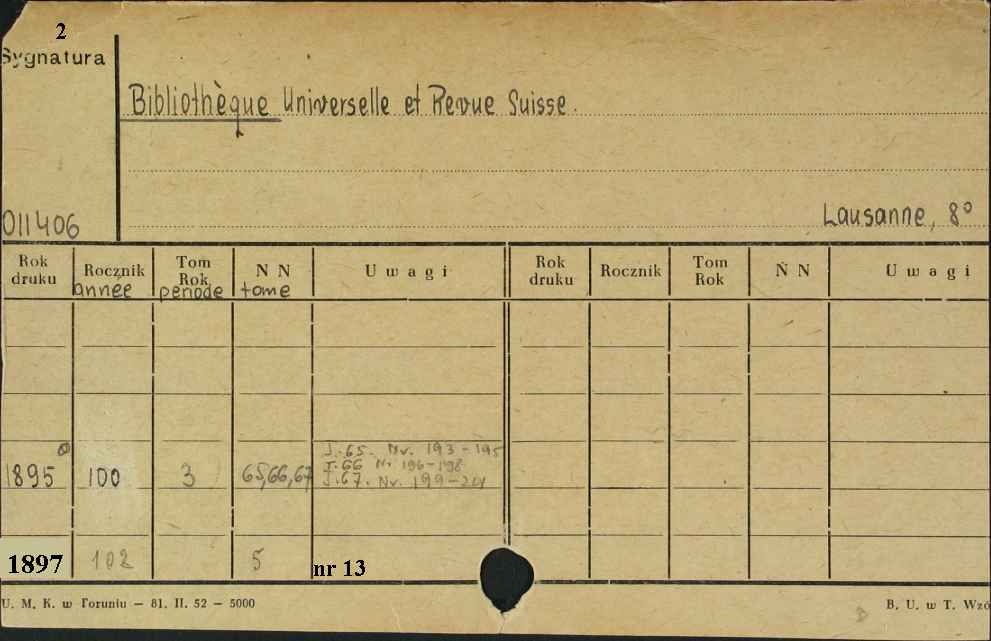 2
Sygnatura
Bibliothèque Universelle et Revue Suisse.
011406
Lausanne, 8°
Rok druku Rocznik année Tom Rok periode N N tome Uwagi Rok druku Rocznik Tom Rok N N Uwagi
J. 65. Nv. 193-195
J. 66 Nr 196-198
1895 100 3 65,66,67 J. 67. Nv. 199-201
1897 102 5 nr 13
U. M. K. w Toruniu — 81. II. 52 — 5000
B. U. w T. Wzó